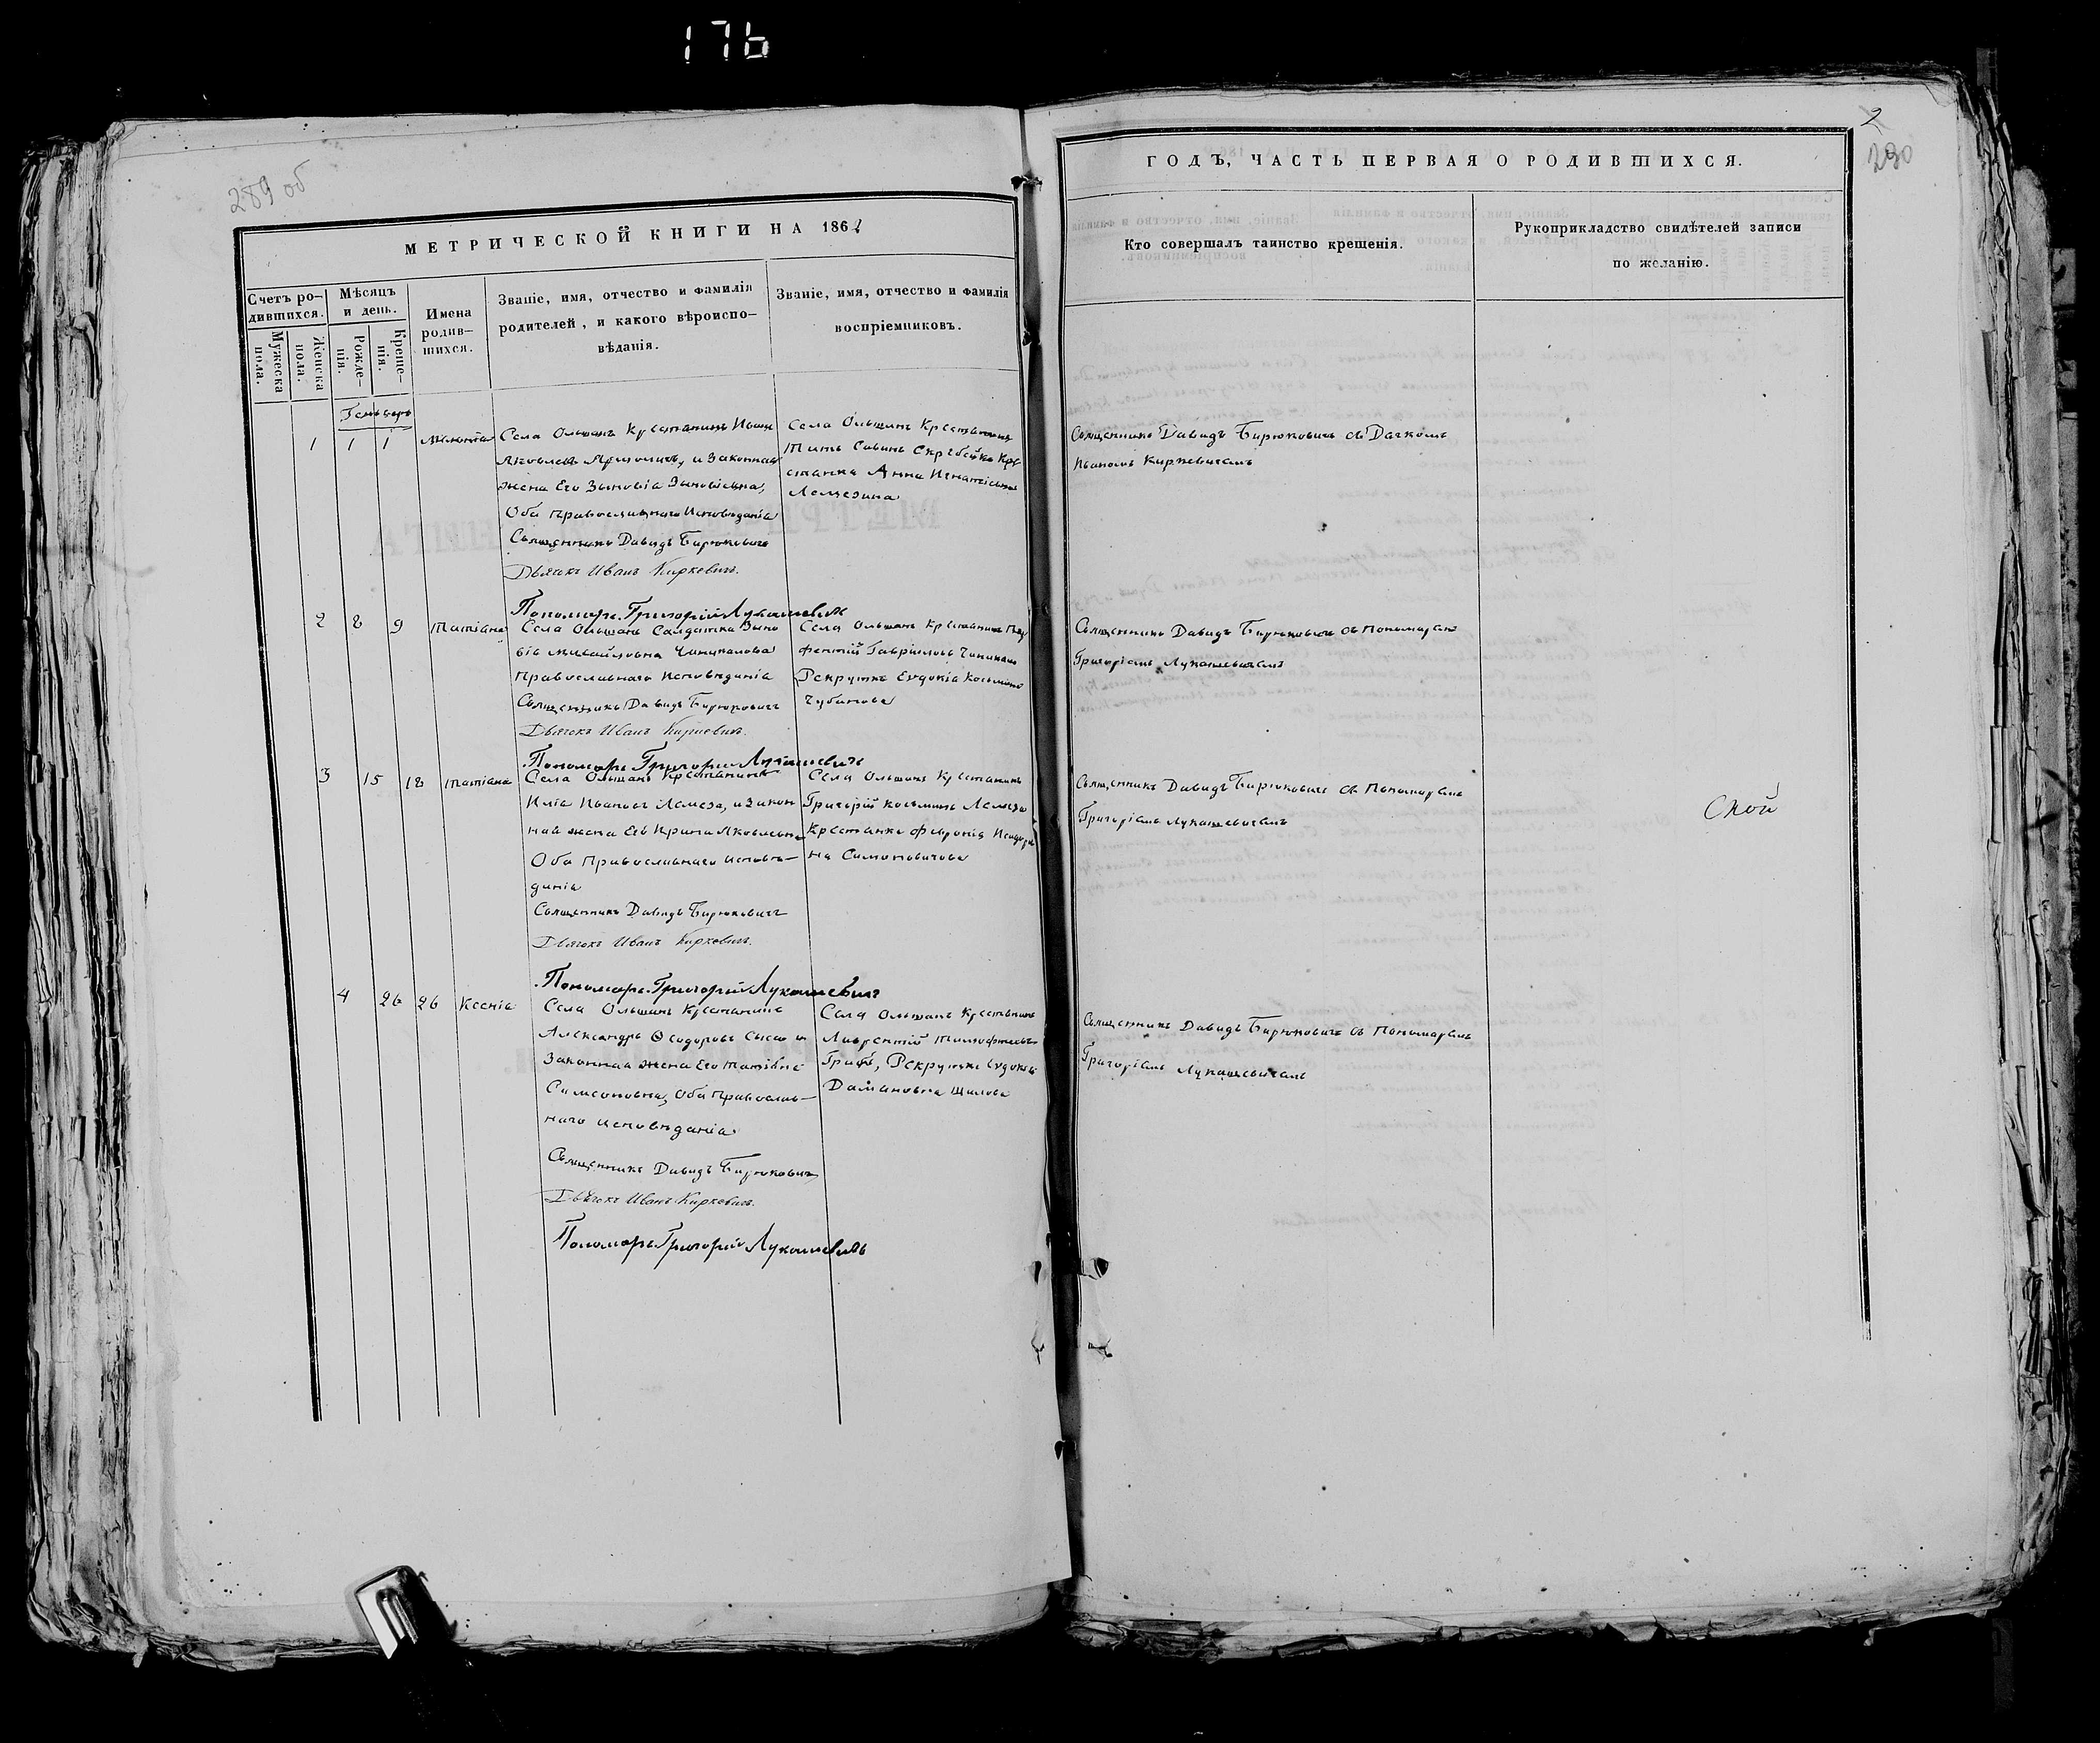 176
289 об
МЕТРИЧЕСКОЙ КНИГИ НА 186
Счетъ ро-
дившихся.
Мужеска
пола.
Женска
пола.
Мѣсяцъ
и день.
Рожде-
нія.
Креще-
нія.
Имена
родив-
шихся.
Званіе, имя, отчество и фамилія
родителей, и какого вѣроиспо-
вѣданія.
Званіе, имя, отчество и фамилія
воспріемниковъ.
Генваръ
1 1 1
Села Ольшанъ Крестянинъ Иванъ
Яковлевъ и Законная
жена Его Зыновія Зыновіевна,
Оба Православнаго Исповѣданія
Священникъ Давидъ Бирюковичъ
Дьячокъ Иванъ Киркевичъ.
Пономарь Григорій Лукашевичъ
Села Ольшанъ Крестянинъ
Титъ Савинъ Кре
стянка Анна Игнатіевна
2 8 9 Татіана
Села Ольшанъ Салдатка Зыно
вія Михайловна
Православнаго Исповѣданія
Священникъ Давидъ Бирюковичъ
Дьячокъ Иванъ Киркевичъ.
Пономарь Григорій Лукашевичъ
Села Ольшанъ Крестянинъ
Гавріиловъ
Рекрутка Евдокія Косьмина
3 15 18 Татіана
Села Ольшанъ Крестянинъ
Илія Ивановъ Лемеза, и Закон
ная жена Его Ирина Яковлевна
Оба Православнаго Исповѣ-
данія
Священникъ Давидъ Бирюковичъ
Дьячокъ Иванъ Киркевичъ.
Пономарь Григорій Лукашевичъ
Села Ольшанъ Крестянинъ
Григорій Косьминъ Лемеза
Крестянка Феврония
на Симоновичова
4 26 26 Ксенія
Села Ольшанъ Крестянинъ
Александръ Ѳеодоровъ и
Законная жена Его Татіана
Самсоновна, Оба Православ-
наго исповѣданія
Священникъ Давидъ Бирюковичъ
Дьячокъ Иванъ Киркевичъ.
Пономарь Григорій Лукашевичъ
Села Ольшанъ Крестянинъ
Лаврентій Тимофеевъ
Рекрутка Евдокія
Даміановна Шилова
2
290
ГОДЪ, ЧАСТЬ ПЕРВАЯ О РОДИВШИХСЯ.
Кто совершалъ таинство крещенія.
Рукоприкладство свидѣтелей записи
по желанію.
Священникъ Давидъ Бирюковичъ съ Дячкомъ
Иваномъ Киркевичемъ
Священникъ Давидъ Бирюковичъ съ Пономарем
Григоріемъ Лукашевичемъ
Священникъ Давидъ Бирюковичъ съ Пономаремъ
Григоріемъ Лукашевичемъ
ской
Священникъ Давидъ Бирюковичъ съ Пономаремъ
Григоріемъ Лукашевичемъ